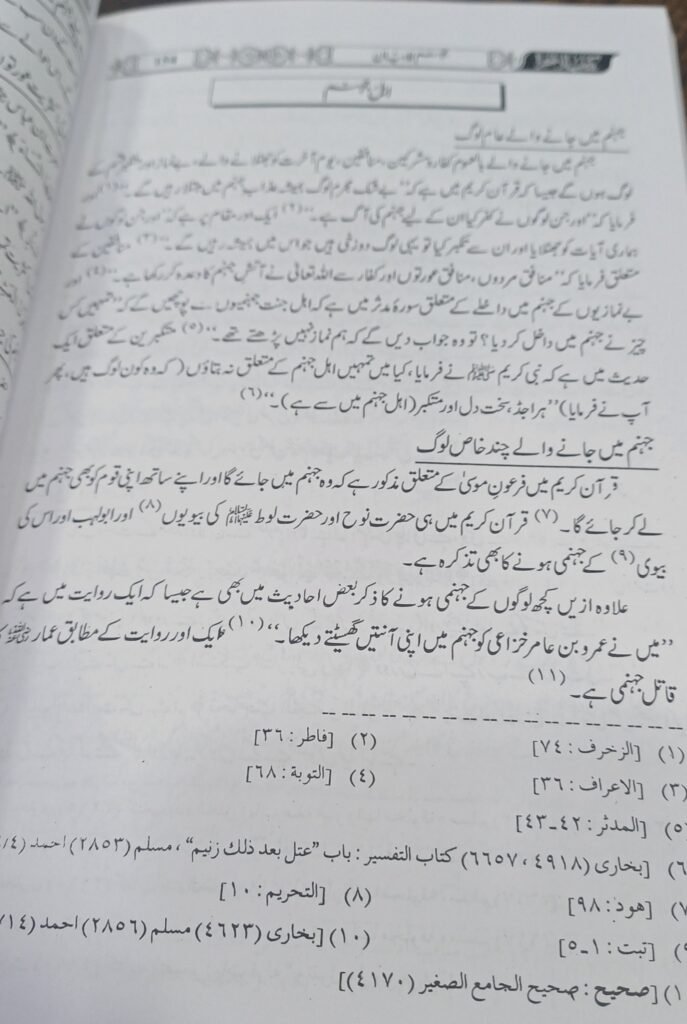 اہل جہنم
جہنم میں جانے والے عام لوگ
جہنم میں جانے والے بالعموم کفار و مشرکین، منافقین، یوم آخرت کو جھٹلانے والے، بے نماز اور متکبر قسم کے
لوگ ہوں گے جیسا کہ قرآن کریم میں ہے کہ ’’بے شک مجرم لوگ ہمیشہ عذاب جہنم میں مبتلا رہیں گے۔‘‘(۱) اور
فرمایا کہ ’’اور جن لوگوں نے کفر کیا ان کے لیے جہنم کی آگ ہے۔‘‘(۲) ایک اور مقام پر ہے کہ ’’اور جن لوگوں نے
ہماری آیات کو جھٹلایا اور ان سے تکبر کیا تو یہی لوگ دوزخی ہیں جو اس میں ہمیشہ رہیں گے۔‘‘(۳) منافقین کے
متعلق فرمایا کہ ’’منافق مردوں، منافق عورتوں اور کفار سے اللہ تعالیٰ نے آتش جہنم کا وعدہ کر رکھا ہے۔‘‘(٤) اور
بے نمازیوں کے جہنم میں داخلے کے متعلق سورۂ مدثر میں ہے کہ اہل جنت جہنمیوں سے پوچھیں گے کہ ’’تمہیں کس
چیز نے جہنم میں داخل کر دیا؟ تو وہ جواب دیں گے کہ ہم نماز نہیں پڑھتے تھے۔‘‘(٥) متکبرین کے متعلق ایک
حدیث میں ہے کہ نبی کریم ﷺ نے فرمایا، کیا میں تمہیں اہل جہنم کے متعلق نہ بتاؤں (کہ وہ کون لوگ ہیں، پھر
آپ نے فرمایا) ’’ہر اجڈ، سخت دل اور متکبر (اہل جہنم میں سے ہے)۔‘‘(٦)
جہنم میں جانے والے چند خاص لوگ
قرآن کریم میں فرعونِ موسیٰ کے متعلق مذکور ہے کہ وہ جہنم میں جائے گا اور اپنے ساتھ اپنی قوم کو بھی جہنم میں
لے کر جائے گا۔(۷) قرآن کریم میں ہی حضرت نوح اور حضرت لوط علیہما السلام کی بیویوں(۸) اور ابولہب اور اس کی
بیوی(۹) کے جہنمی ہونے کا بھی تذکرہ ہے۔
علاوہ ازیں کچھ لوگوں کے جہنمی ہونے کا ذکر بعض احادیث میں بھی ہے جیسا کہ ایک روایت میں ہے کہ
’’میں نے عمرو بن عامر خزاعی کو جہنم میں اپنی آنتیں گھسیٹتے دیکھا۔‘‘(۱۰) ایک اور روایت کے مطابق عمار رضی اللہ عنہ
قاتل جہنمی ہے۔(۱۱)
(۱) [الزخرف : ٧٤] (۲) [فاطر : ٣٦]
(۳) [الاعراف : ٣٦] (٤) [التوبة : ٦٨]
[المدثر : ٤٢ـ٤٣]
[بخاری (٤٩١٨، ٦٦٥٧) کتاب التفسیر : باب ”عتل بعد ذلك زنیم“، مسلم (٢٨٥٣) احمد
[هود : ٩٨] (۸) [التحریم : ١٠]
[تبت : ١ـ٥] (۱۰) [بخاری (٤٦٢٣) مسلم (٢٨٥٦) احمد
[صحیح : صحیح الجامع الصغیر (٤١٧٠)]